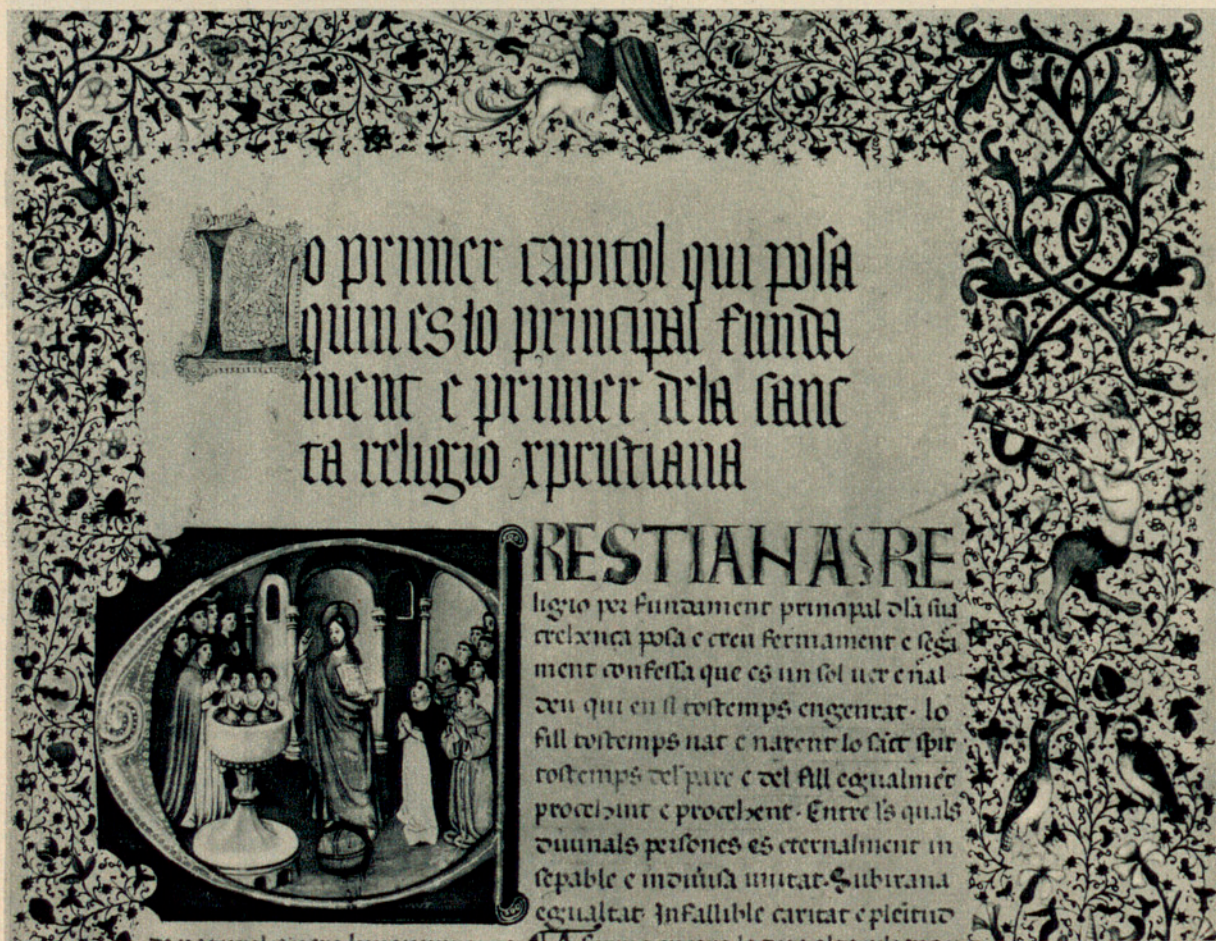 Lo primer capitol qui posa
quin es lo principal funda
ment e primer dela sanc
ta religio xpristiana
CRESTIANA RE
ligio per fundament principal dla sua
crehença posa e creu fermament e sega
ment confessa que es un sol uer e nal
deu qui en si tostemps engenrat. lo
fill tostemps nat e naxent lo sāct spir
tostemps del pare e del fill egualmēt
procehint e procehent. Entre ls quals
diuinals persones es eternalment in
sepable e indiuisa unitat. Subirana
egualtat. Infallible caritat e plēitud